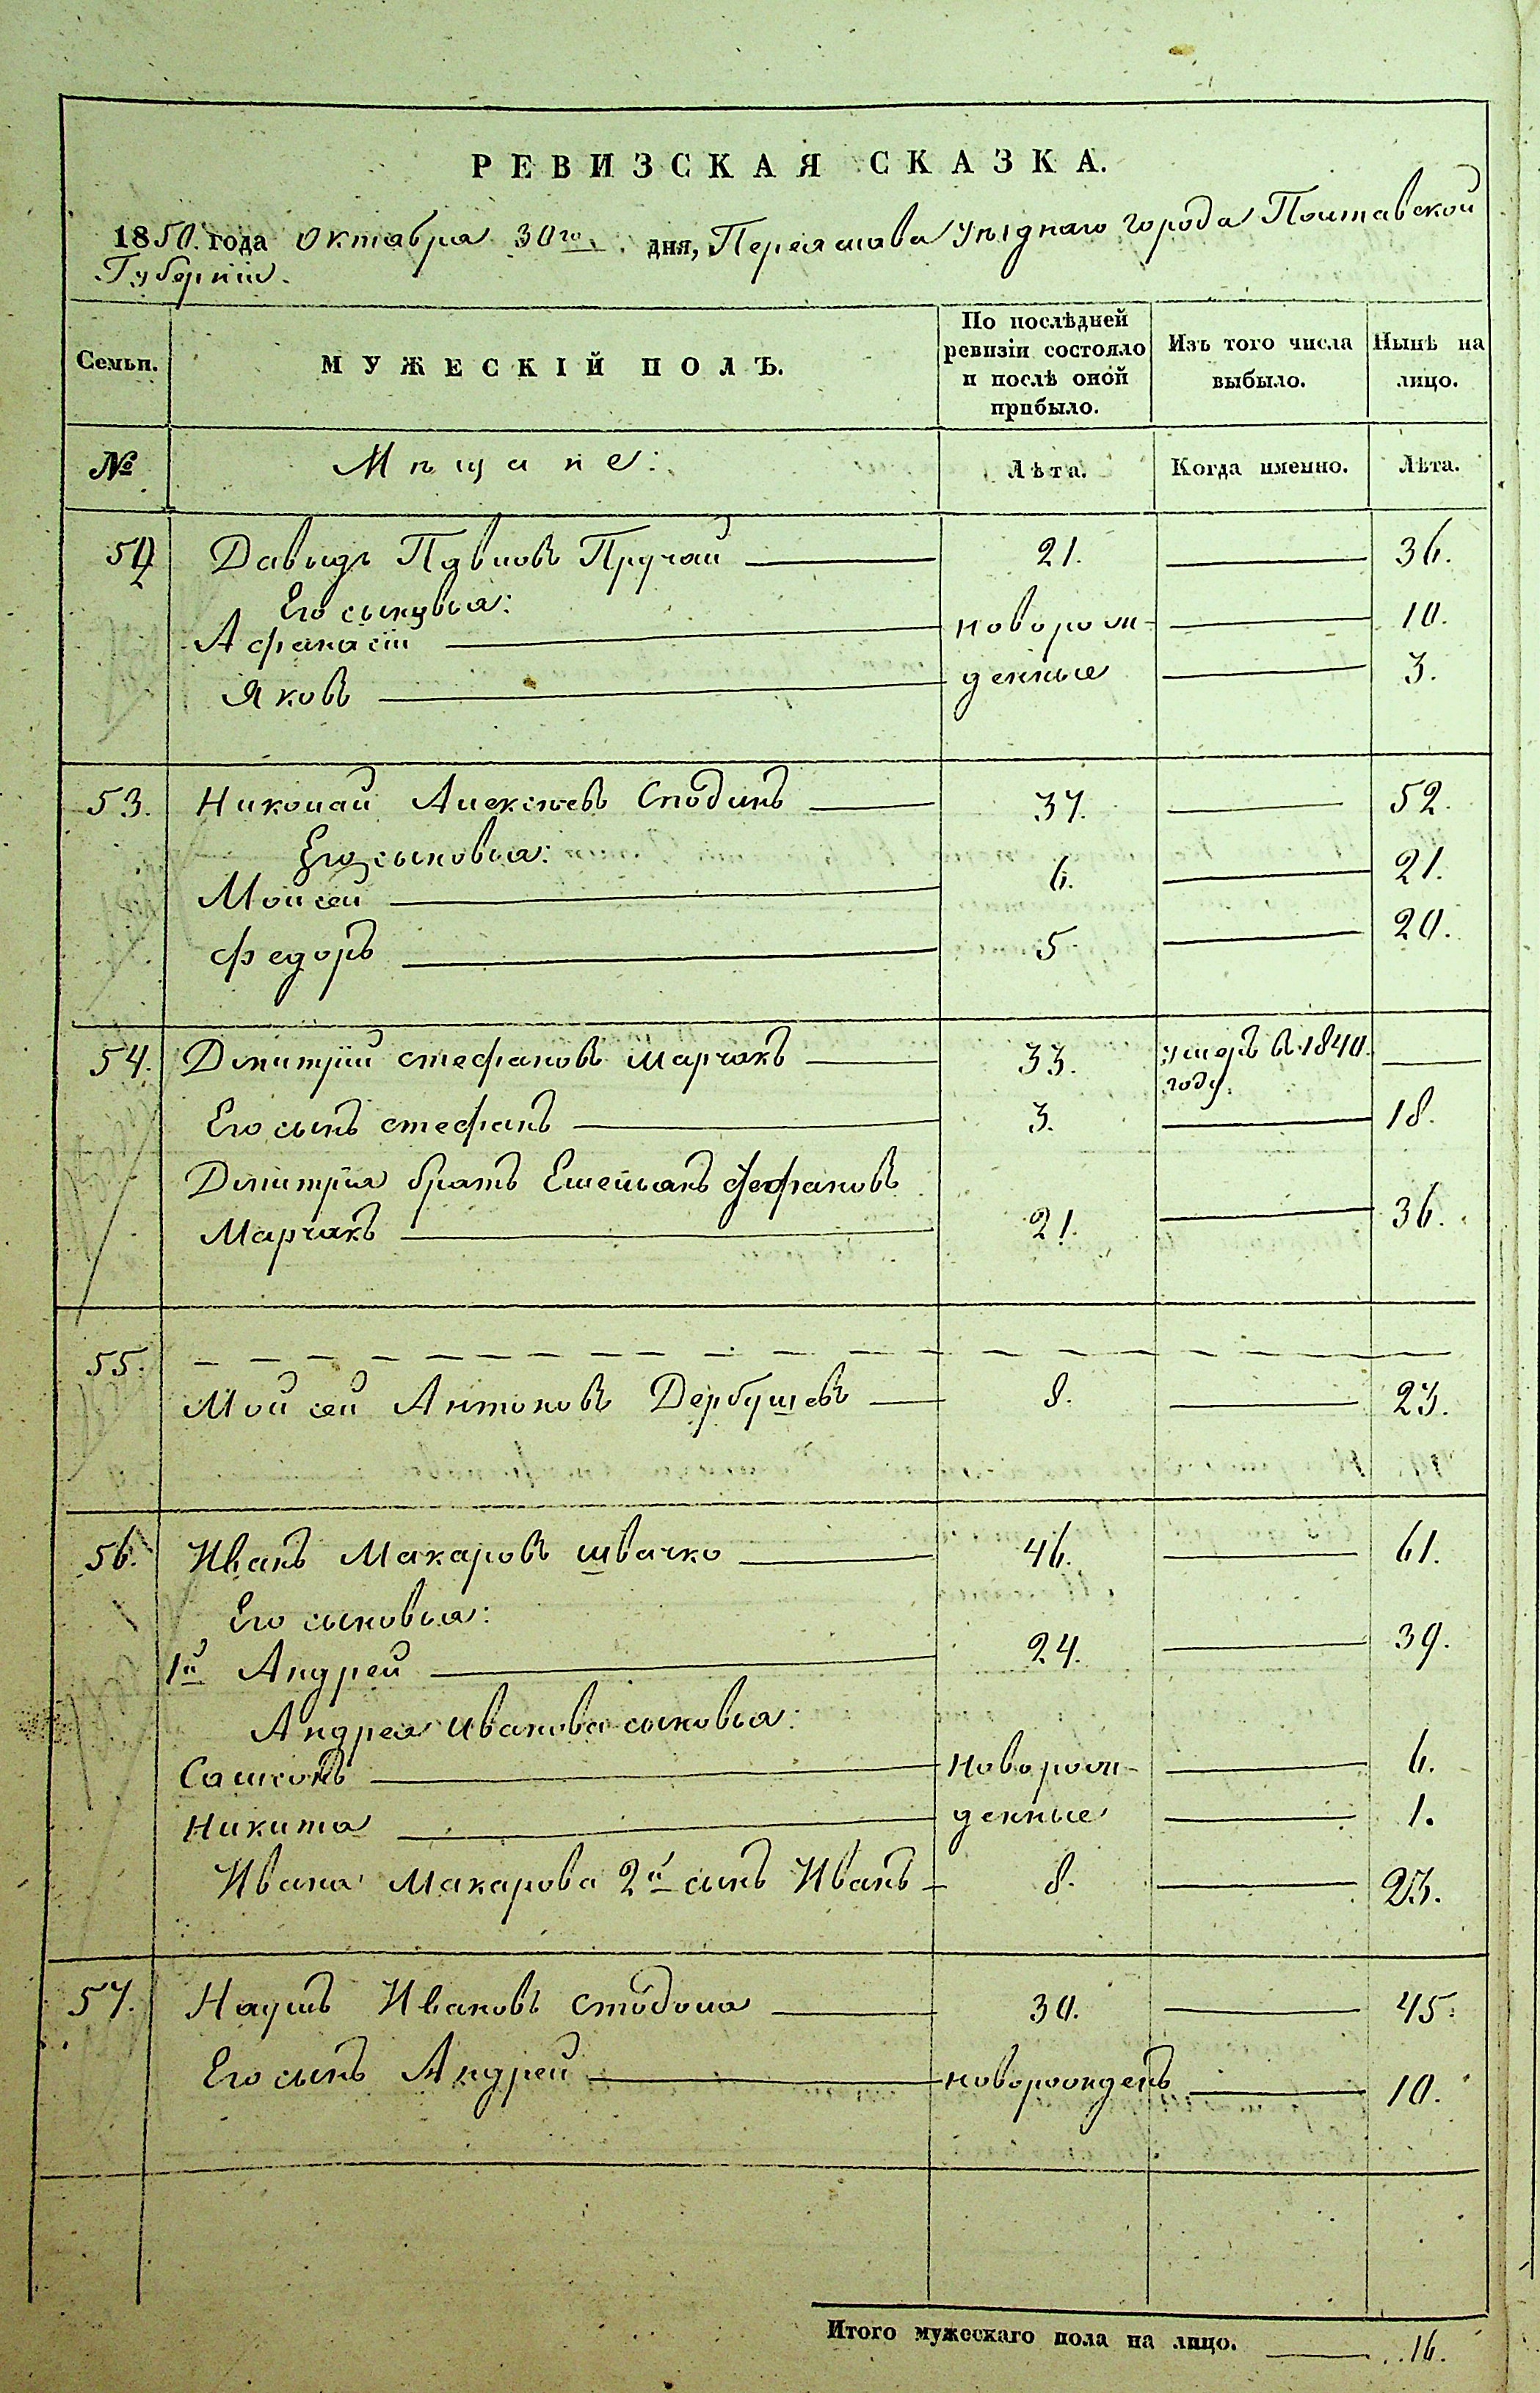 РЕВИЗСКАЯ СКАЗКА.
1850. года Октабра 30го. дня, Переяслава уѣзднаго города Полтавской
Губерніи.
Семьи.
МУЖЕСКІЙ ПОЛЪ.
По послѣдней
ревизіи состояло
и послѣ оной
прибыло.
Изъ того числа
выбыло.
Нынѣ на
лицо.
№
Мѣщане:
Лѣта.
Когда именно.
Лѣта.
52 Давыдъ Павловъ Пручай 21. 36.
Его сыновья:
Афанасій новорож- 10.
Яковъ денные 3.
53. Николай Алексѣевъ 37. 52.
Его сыновья:
Мойсей 6. 21.
Федоръ 5 20.
54. Дмитрій Стефановъ Марчакъ 33. умеръ въ 1840.
году.
Его сынъ Стефанъ 3. 18.
Дмитрія братъ Емельянъ Стефановъ
Марчакъ 21. 36.
55.
Мойсей Антоновъ Дербушевъ 8. 23.
56. Иванъ Макаровъ Швачко 46. 61.
Его сыновья:
1й Андрей 24. 39.
Андрея Иванова сыновья:
Самсонъ новорож- 6.
Никита денные 1.
Ивана Макарова 2й сынъ Иванъ 8. 23.
57. Наумъ Ивановъ Стодола 30. 45.
Его сынъ Андрей новорожденъ 10.
Итого мужескаго пола на лицо. 16.